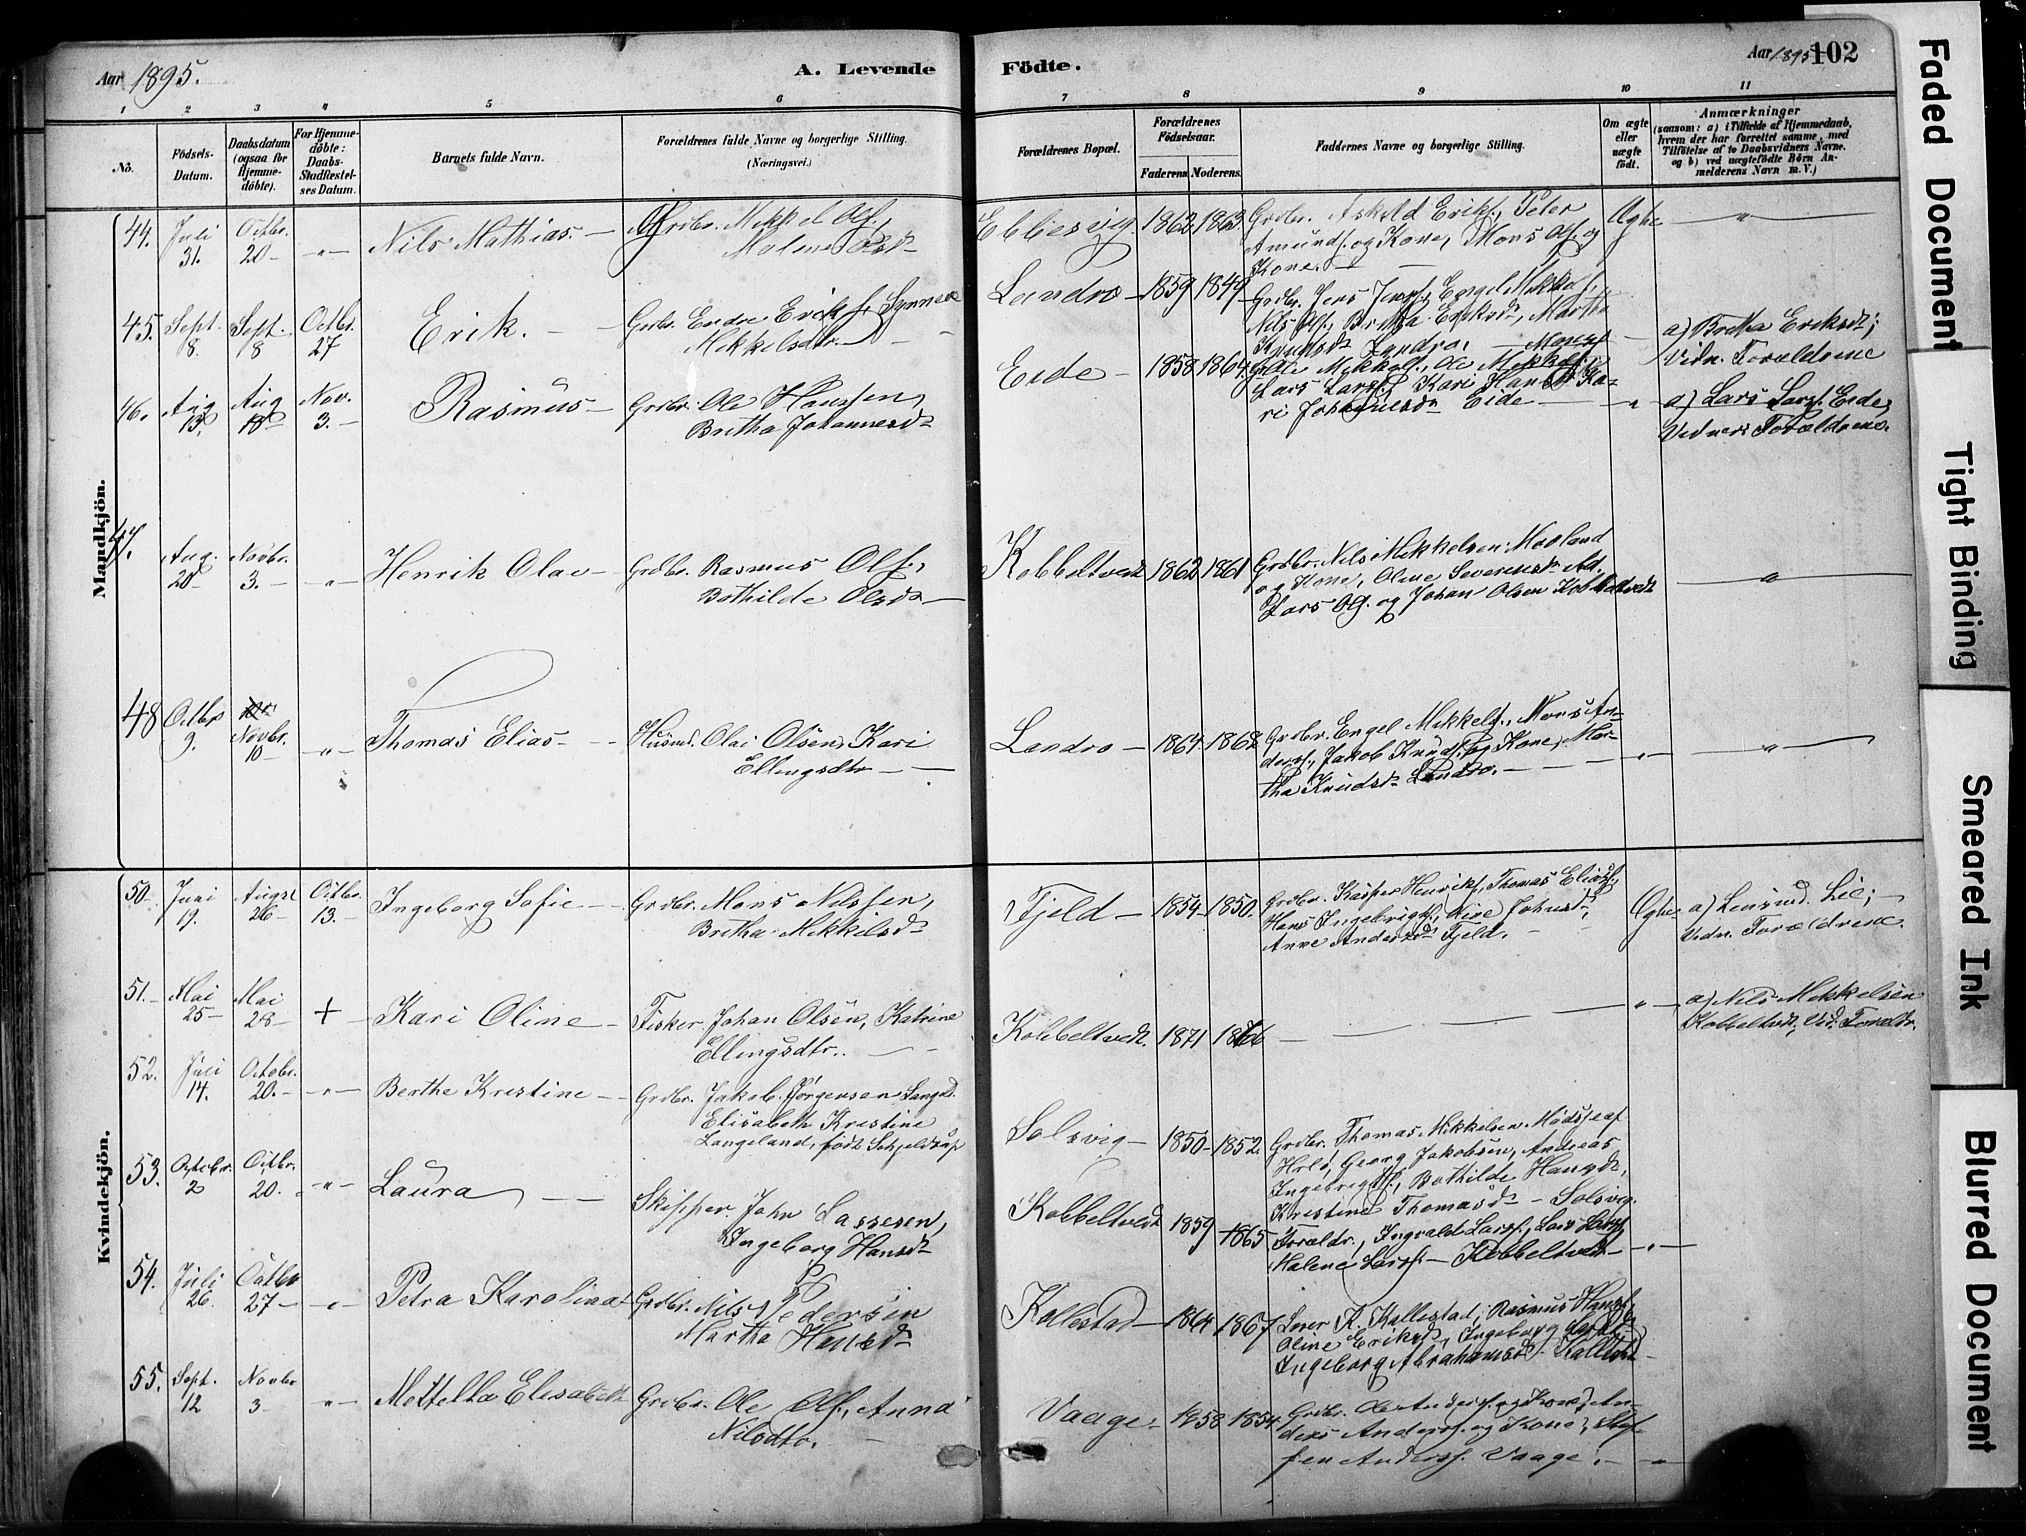 Aar 1895.
A. Levende Födte.
Aar 1895 102
1 2 3 4 5 6 7 8 9 10 11
No.
Födsels-Datum.
Daabsdatum (ogsaa for Hjemmedöbte).
For Hjemmedöbte: Daabs-Stadfestelses Datum.
Barnets fulde Navn.
Forældrenes fulde Navne og borgerlige Stilling.
(Næringsvei.)
Forældrenes Bopæl.
Forældrenes Födselsaar.
Faderens. Moderens.
Faddernes Navne og borgerlige Stilling.
Om ægte eller uægte födt.
Anmærkninger
(saasom: a) i Tilfælde af Hjemmedaab, hvem der har forrettet samme, med Tilföielse af to Daabsvidners Navne. og b) ved uægtefödte Börn Anmelderens Navn m. V.)
Mandkjön.
44. Juli 31. Octbr. 20 — „ — Nils Mathias. — Grdbr. Mikkel Ols.,
Malene Olsdr
Ebbesvig 1862 1863 Grdbr. Askild Eriks., Peter
Amunds. og Kone, Mons Ols. og
Kone. — Ægte — „ —
45. Sept. 8. Sept. 18 Octbr. 27 Erik. — Grdbr. Endre Eriks., Synneve
Mikkelsdtr. —
Landro — 1859 1849 Grdbr. Jens Jens., Engel Mikkels.,
Nils Ols., Britha Eriksdr, Martha
Knudsdr Landro. — a) Britha Eriksdr;
Vidn. Forældrene
46. Aug. 13. Aug. 18 Nov. 3. — Rasmus — Grdbr. Ole Hanssen,
Britha Johannesdr
Eide — 1858 1864 Ole Mikkels., Ole Mikkels.,
Lars Lars., Kari Hansdr, Ka-
ri Johannesdr Eide — „ a) Lars Lars. Eide,
Vidner: Forældrene.
47. Aug. 20 Novbr. 3. — „ Henrik Olai — Grdbr. Rasmus Ols.,
Bothilde Olsdr —
Kobbeltvedt 1862 1861 Grdbr. Nils Mikkelsen Moland
og Kone, Oline Severinsdr
Lars Ols. og Johan Olsen Kobbeltvedt — „ —
48 Octbr 9. Novbr. 10 — „ — Thomas Elias — Husmd. Olai Olsen, Kari
Ellingsdtr —
Landro — 1864 1862 Grdbr. Engel Mikkels., Mons An-
ders., Jakob Knuds. og Kone, Mar-
tha Knudsdr Landro. — „ — „ —
Kvindekjön.
50. Juni 19. Augst 26 — Octbr. 13. — Ingeborg Sofie — Grdbr. Mons Nilssen,
Britha Mikkelsdr
Fjeld — 1854 1850. Grdbr. Kasper Henriks., Thomas Elias.,
Hans Ingebrigts., Johnsdr,
Anne Andersdr Fjeld. — Ægte a) Lensmd. Lie;
Vidn. Forældrene.
51. — Mai 25 — Mai 28 — + Kari Oline — Fisker Johan Olsen, Katrine
Ellingsdtr. —
Kobbeltvedt. 1871 1866 — „ — a) Nils Mikkelsen
Kobbeltvedt, Vid. Forældr.
52. Juli 14. Octobr. 20. — „ — Berthe Kristine — Grdbr. Jakob Jörgensen Langld.
Elisabeth Kristine
Langeland, födt Schjeldrup
Solsvig — 1850 — 1852. Grdbr. Thomas Mikkelsen
Georg Jakobsen, Andreas
Ingebrigts., Bothilde Hansdr,
Kristine Thomasdr — Solsvig.
53. Octobr. 2 Octbr. 20. — „ — Laura — Skipper John Lassesen,
Ingeborg Hansdr
Kobbeltvedt 1859 1865 Foreldr., Ingvald Lars., Lars Lars.
Malene Lars. — Kobbeltvedt — „ —
54. Juli 26. Octbr 27 — „ — Petra Karolina Grdbr. Nils Pedersen
Martha Hansdr
Kallestad — 1864 1867 K. Kallestad, Rasmus Hans.,
Oline Eriksdr, Ingeborg
Ingeborg Abrahamsdr — Kallest.
55. Sept. 12 Novbr 3 — „ — Mettella Elisabeth Grdbr. Ole Ols., Anna
Nilsdtr. —
Vaage. 1858 1854 Grdbr. Ole Anders. og Kone, An-
ders Anders. og Kone, Stef-
fen Anders. Vaage. — „ —
Faded Document
Tight Binding
Smeared Ink
Blurred Document